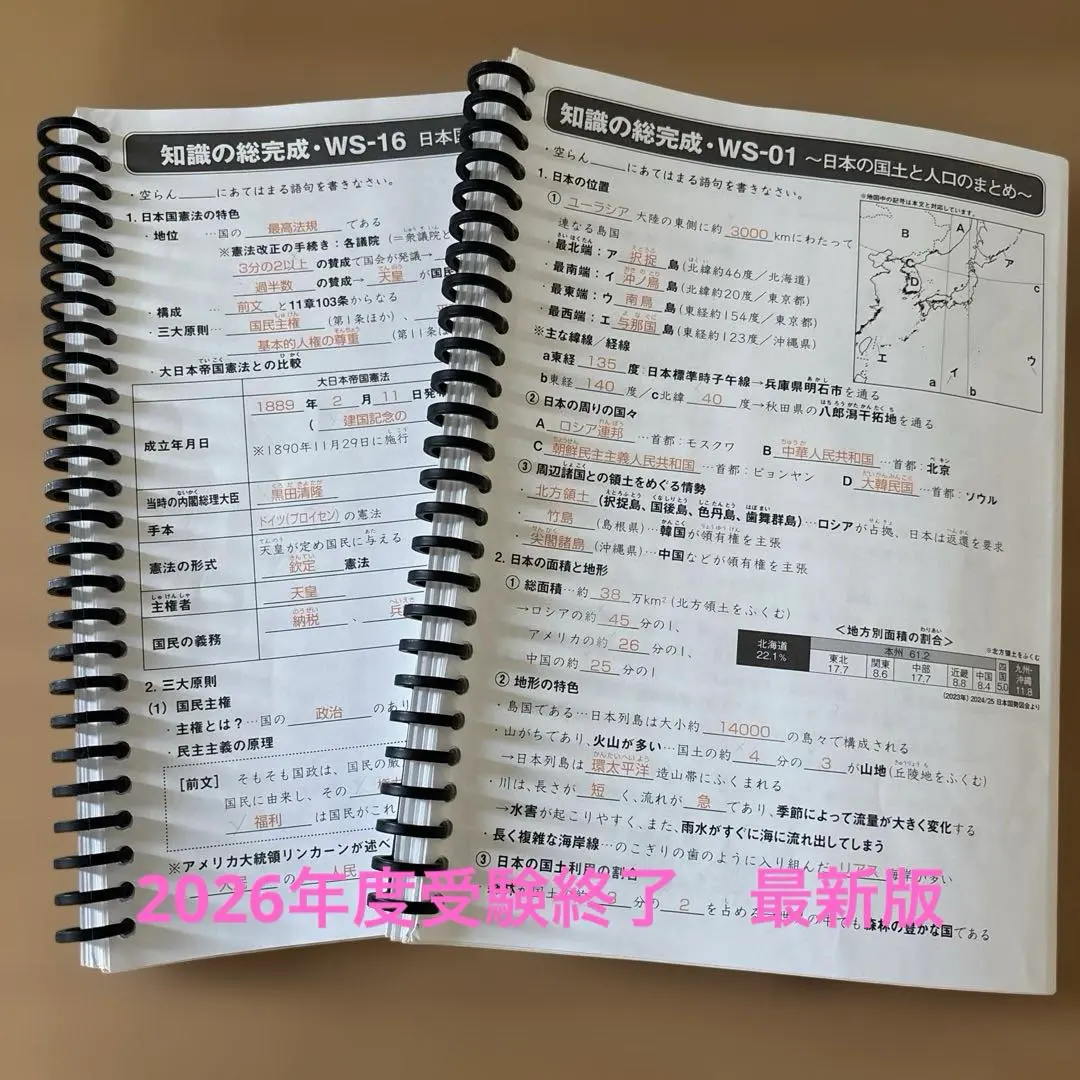 知識の総完成・WS-16 日本国
・空らん____にあてはまる語句を書きなさい。
1. 日本国憲法の特色
・地位 …国の 最高法規 である
※憲法改正の手続き：各議院（＝衆議院と
3分の2以上 の賛成で国会が発議→
過半数 の賛成→ 天皇 が国民
・構成 … 前文 と11章103条からなる
・三大原則… 国民主権 （第1条ほか）、
基本的人権の尊重 （第11条ほ
・大日本帝国憲法との比較
大日本帝国憲法
成立年月日
1889 年 2 月 11 日発布
（ 建国記念の
※1890年11月29日に施行
当時の内閣総理大臣
黒田清隆
手本
ドイツ(プロイセン) の憲法
憲法の形式
天皇が定め国民に与える
欽定 憲法
主権者
天皇
国民の義務
納税 、 兵
2. 三大原則
(1) 国民主権
・主権とは？…国の 政治 のあり
・民主主義の原理
［前文］ そもそも国政は、国民の厳
国民に由来し、その
福利 は国民がこれ
※アメリカ大統領リンカーンが述べ
人民 の 人民
知識の総完成・WS-01 ～日本の国土と人口のまとめ～
・空らん____にあてはまる語句を書きなさい。
1. 日本の位置
① ユーラシア 大陸の東側に約 3000 kmにわたって
連なる島国
・最北端：ア 択捉 島（北緯約46度／北海道）
・最南端：イ 沖ノ鳥 島（北緯約20度／東京都）
・最東端：ウ 南鳥 島（東経約154度／東京都）
・最西端：エ 与那国 島（東経約123度／沖縄県）
※主な緯線／経線
a東経 135 度：日本標準時子午線→兵庫県明石市を通る
b東経 140 度／c北緯 40 度→秋田県の八郎潟干拓地を通る
※地図中の記号は本文と対応しています。
A
B
ア
C
D
c
エ
ウ
a
イ
b
② 日本の周りの国々
A ロシア連邦 …首都：モスクワ B 中華人民共和国 …首都：北京
C 朝鮮民主主義人民共和国 …首都：ピョンヤン D 大韓民国 …首都：ソウル
③ 周辺諸国との領土をめぐる情勢
・北方領土 （択捉島、国後島、色丹島、歯舞群島）…ロシアが占拠、日本は返還を要求
・竹島 （島根県）…韓国が領有権を主張
・尖閣諸島 （沖縄県）…中国などが領有権を主張
2. 日本の面積と地形
① 総面積…約 38 万km²（北方領土をふくむ）
→ロシアの約 45 分の1、
アメリカの約 26 分の1、
中国の約 25 分の1
＜地方別面積の割合＞
※北方領土をふくむ
北海道 22.1%
本州 61.2
東北 17.7
関東 8.6
中部 17.7
近畿 8.8
中国 8.4
四国 5.0
九州・沖縄 11.8
(2023年) 2024/25 日本国勢図会より
② 地形の特色
・島国である…日本列島は大小約 14000 の島々で構成される
・山がちであり、火山が多い…国土の約 4 分の 3 が山地（丘陵地をふくむ）
→日本列島は 環太平洋 造山帯にふくまれる
・川は、長さが 短 く、流れが 急 であり、季節によって流量が大きく変化する
→水害が起こりやすく、また、雨水がすぐに海に流れ出してしまう
・長く複雑な海岸線…のこぎりの歯のように入り組んだ リアス 海岸が多い
③ 日本の国土利用の割合
分の 2 を占める 森林の豊かな国である
2026年度受験終了 最新版